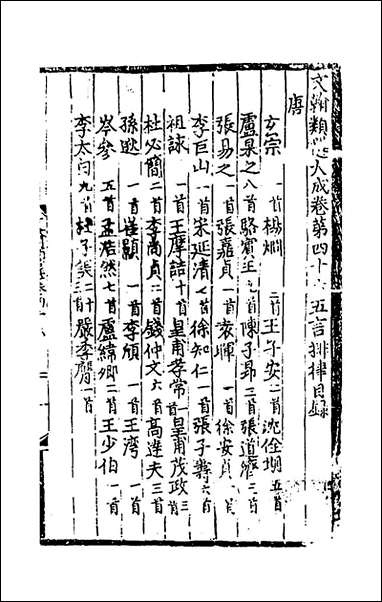 文翰類選大成卷第四十六五言排律目録
唐
玄宗一首楊炯二首王子安二首沈佺期五首
盧昇之八首駱賓王九首陳子昂三首張道濟三首
張易之一首張嘉貞一首袁暉一首徐安貞一首
李巨山一首宋延清七首徐知仁一首張子壽六首
祖詠一首王摩詰十首皇甫孝常一首皇甫茂政三首
杜必簡二首李尚貞二首錢仲文六首高達夫三首
孫逖一首崔顥一首李頎一首王灣一首
岑參五首孟浩然七首盧緯卿二首王少伯一首
李太白九首杜子美二十三首嚴季鷹一首